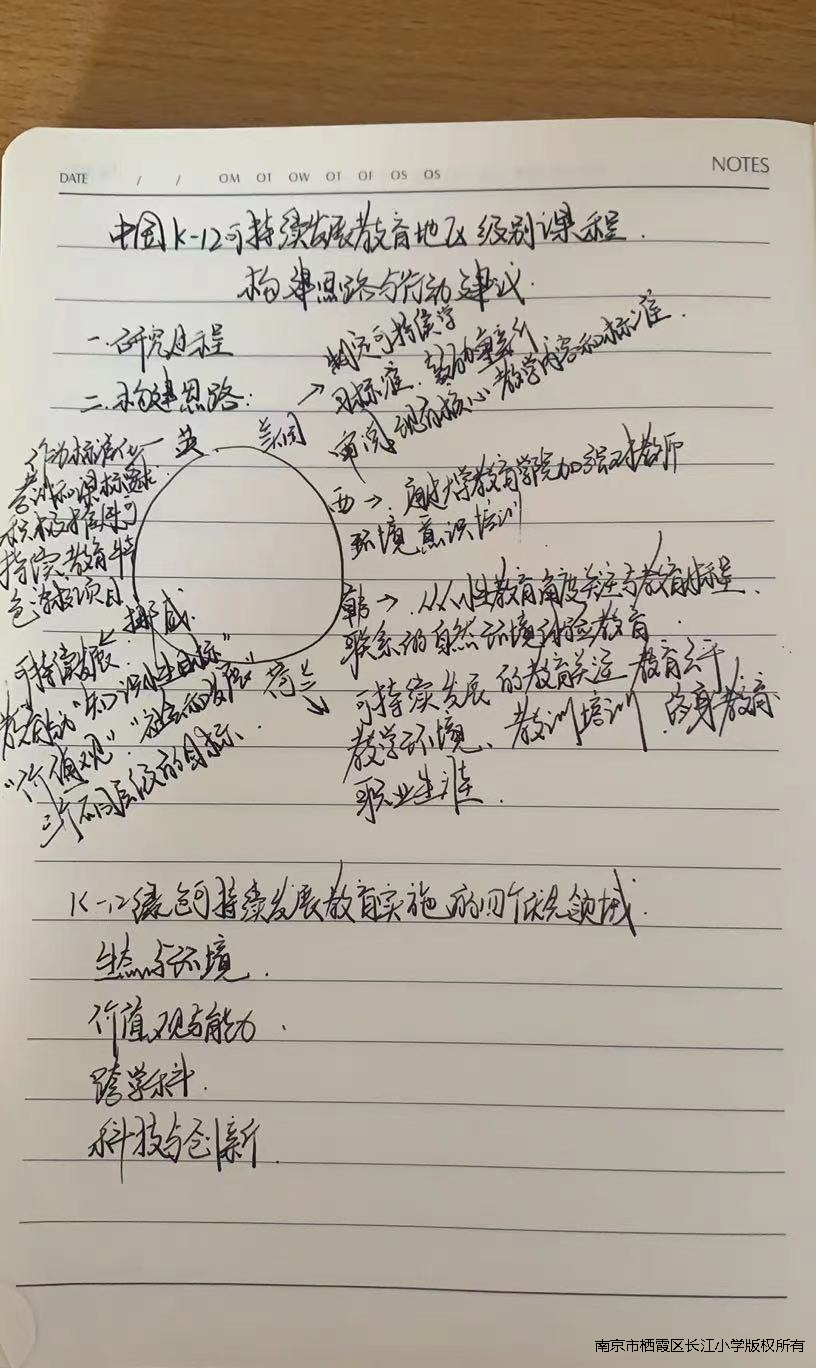 NOTES
DATE / / OM OT OW OT OF OS OS
中国K-12可持续发展教育地区级别课程.
构建思路与行动建议.
一.研究日程
二.构建思路:
美国 → 制定可持续学
习标准.鼓励重新
审阅现有核心教学内容和标准.
英
作为标准化
考训和课标
积极推进可
持院教育特
色课程项目
西 → 通过大学教育学院加强对教师
环境意识培训
韩 → 从人性教育角度关注与教育标程.
联系的自然环境体验教育.
挪威
可持续发展
教育为"知识性目标"
"价值观"."社会和发展"
三个不同层级的目标.
荷兰
可持续发展的教育关注 教育关于
教学环境、教训培训 的身教育
职业生涯.
K-12绿色可持续发展教育实施的四个优先领域.
生态与环境.
价值观与能力.
跨学科.
科技与创新.
南京市栖霞区长江小学版权所有